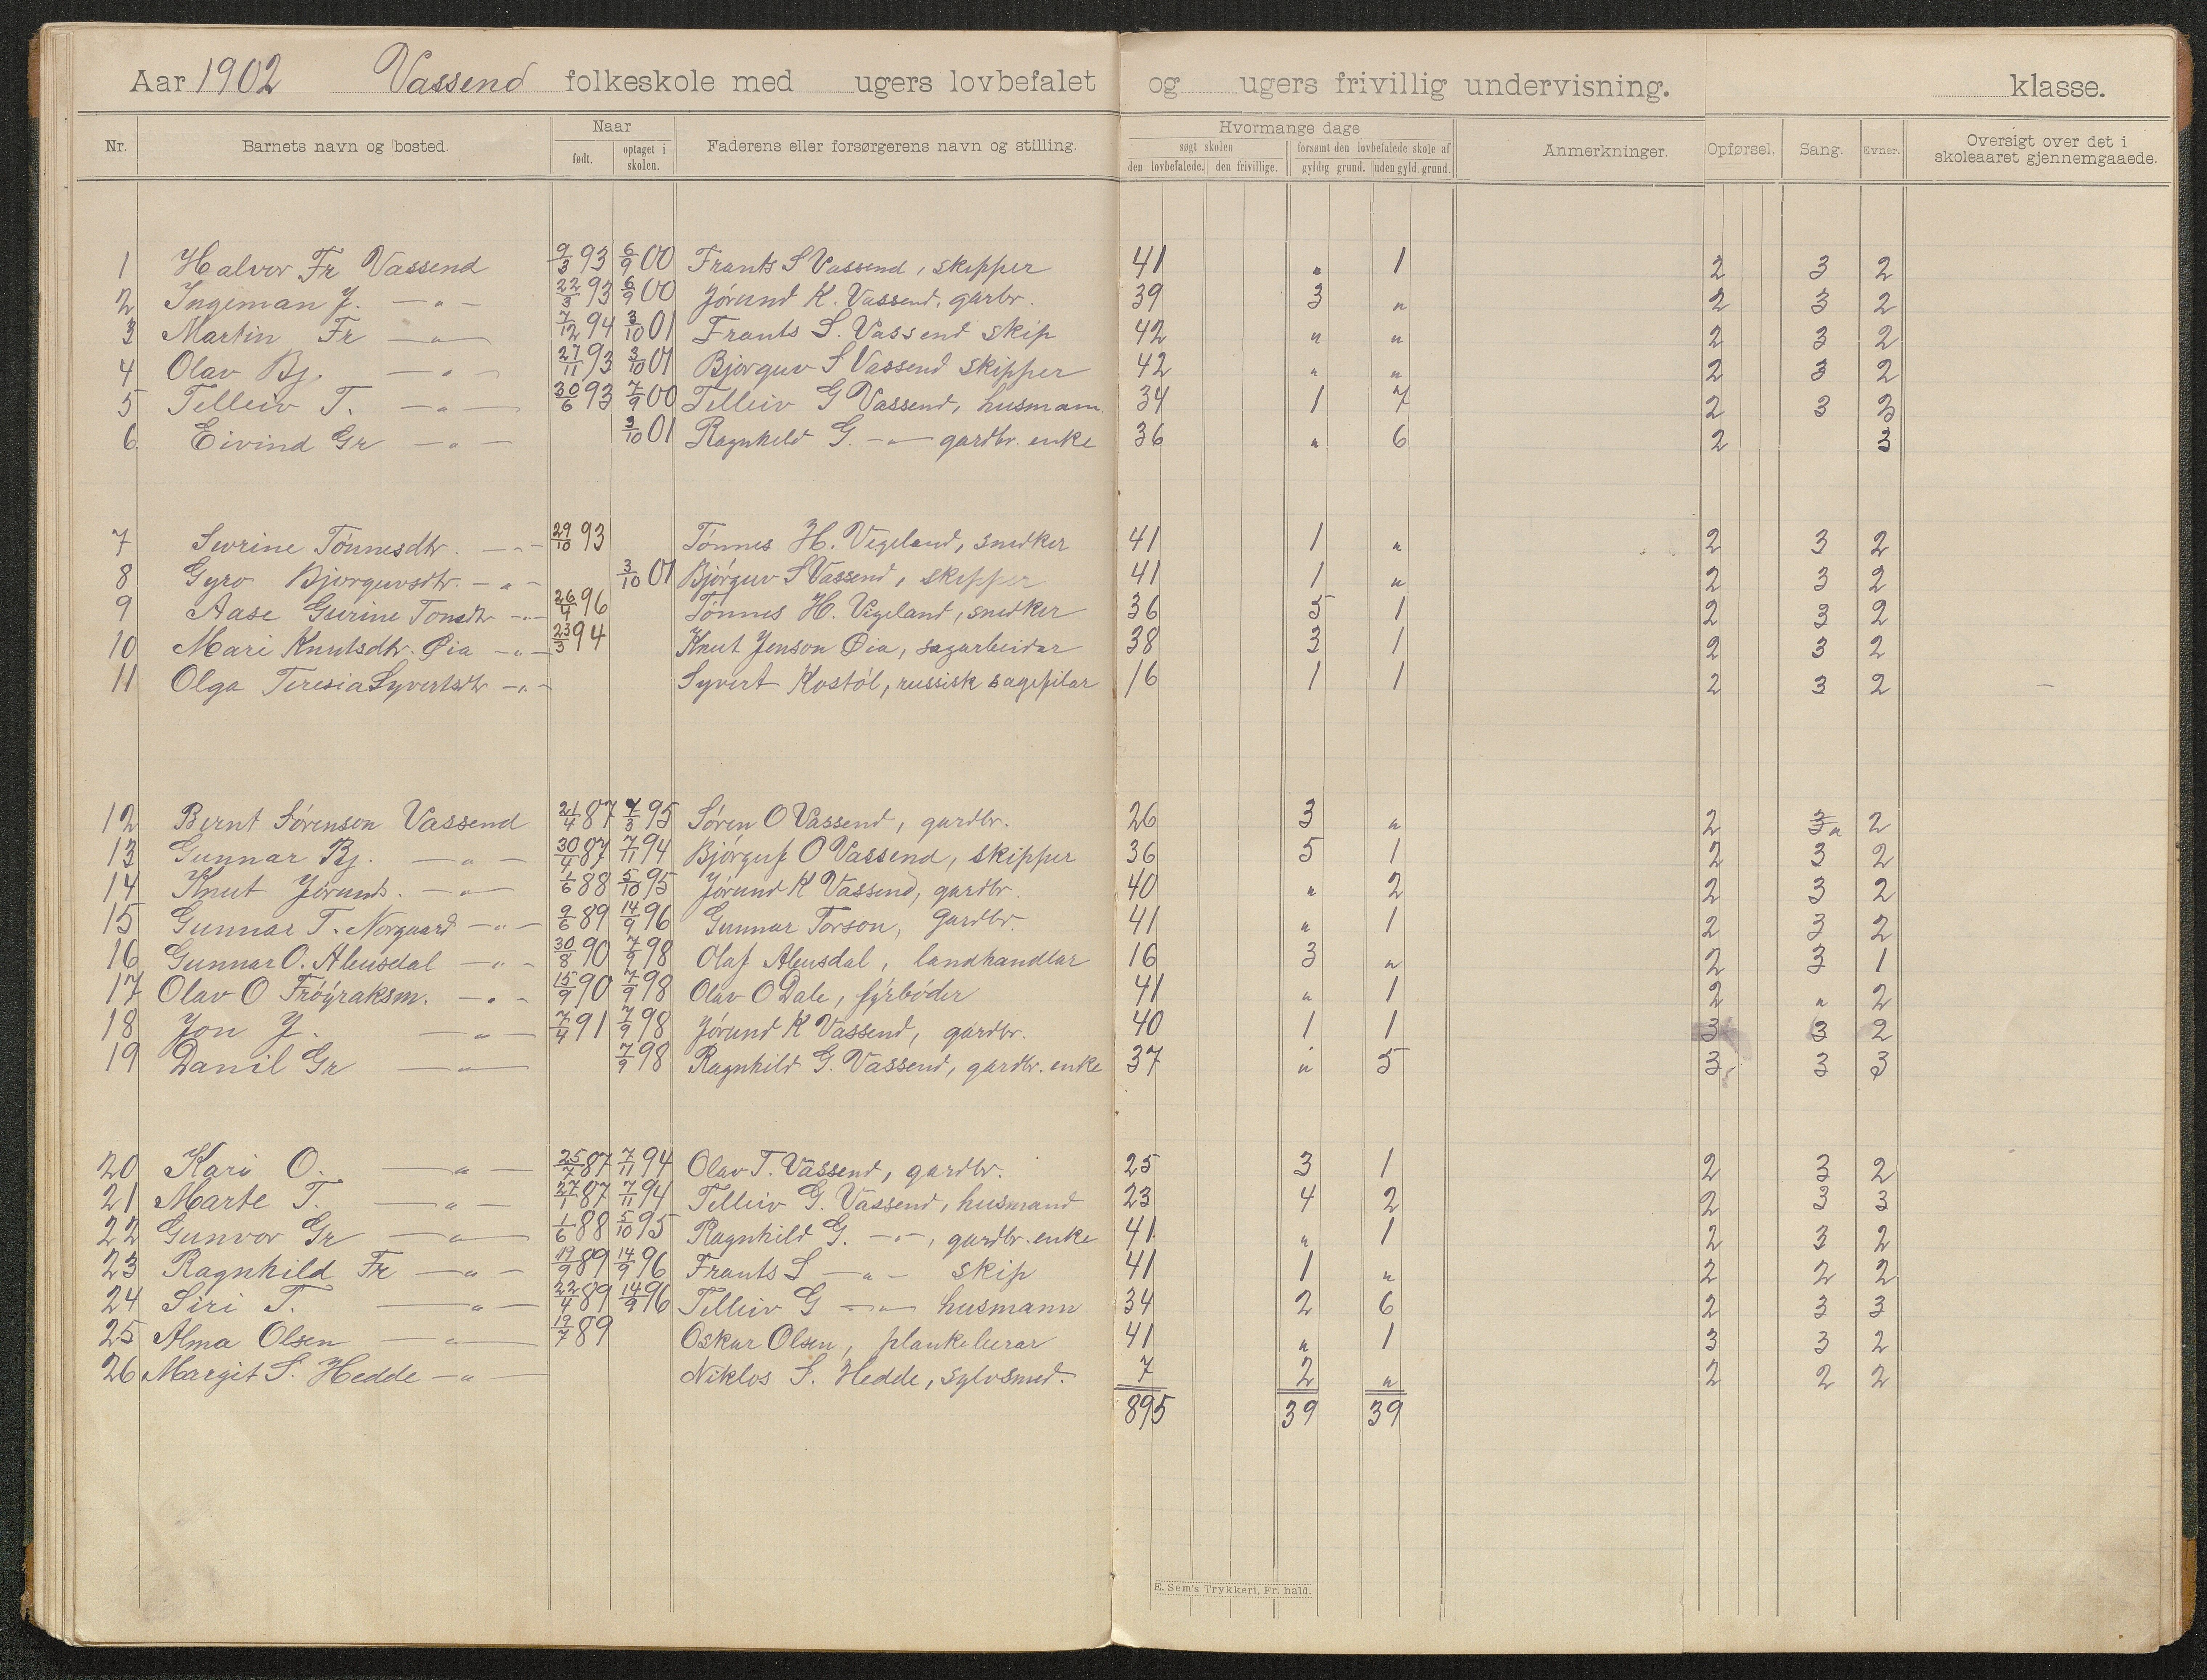 Aar 1902 Vassend folkeskole med ugers lovbefalet og ugers frivillig undervisning. klasse.
Nr. Barnets navn og bosted. Naar født. optaget i skolen. Faderens eller forsørgerens navn og stilling. Hvormange dage søgt skolen den lovbefalede. den frivillige. forsømt den lovbefalede skole af gyldig grund. uden gyld. grund. Anmerkninger. Opførsel. Sang. Evner. Oversigt over det i skoleaaret gjennemgaaede.
1 Halvor Fr Vassend 9/3 93 6/9 00 Frants S Vassend, skipper 41 " 1 2 3 2
2 Ingeman J. —"— 22/3 93 6/9 00 Jørund K. Vassend, garbr. 39 3 " 2 3 2
3 Martin Fr —"— 7/12 94 3/10 01 Frants S. Vassend skip 42 " " 2 3 2
4 Olav Bj. —"— 27/11 93 3/10 01 Bjørguv S Vassend skipper 42 " " 2 3 2
5 Telleiv T. —"— 30/6 93 7/9 00 Telleiv G Vassend, husmann 34 1 7 2 3 3
6 Eivind Gr —"— 3/10 01 Ragnheld G. —"— gardbr. enke 36 " 6 2 3
7 Sevrine Tønnesdtr. —"— 29/10 93 Tønnes H. Vegeland, snedker 41 1 " 2 3 2
8 Gyro Bjørguvsdtr. —"— 3/10 01 Bjørguv S Vassend, skipper 41 1 " 2 3 2
9 Aase Gurine Tønsdtr —"— 26/4 96 Tønnes H. Vigeland, snedker 36 5 1 2 3 2
10 Mari Knutsdtr. Øia —"— 23/3 94 Knut Jenson Øia, sagarbeidar 38 3 1 2 3 2
11 Olga Teresia Syvertsdtr —"— Syvert Kostøl, russisk sagefilar 16 1 1 2 3 2
12 Bernt Sørenson Vassend 21/4 87 7/3 95 Søren O Vassend, gardbr. 26 3 " 2 3 " 2
13 Gunnar Bj. —"— 30/4 87 7/11 94 Bjørguf O Vassend, skipper 36 5 1 2 3 2
14 Knut Jørunds. —"— 1/6 88 5/10 95 Jørund K Vassend, gardbr. 40 " 2 2 3 2
15 Gunnar T. Norgaard —"— 9/6 89 14/9 96 Gunnar Torson, Gardbr. 41 " 1 2 3 2
16 Gunnar O. Aleusdal —"— 30/8 90 7/9 98 Olaf Aleusdal, landhandlar 16 3 " 2 3 1
17 Olav O Frøyraksm. —"— 15/9 90 7/9 98 Olav O Dale, fyrbøder 41 " 1 2 " 2
18 Jon J. —"— 7/4 91 7/9 98 Jørund K Vassend, gardbr. 40 1 1 3 3 2
19 Danil Gr —"— 7/9 98 Ragnhild G. Vassend, gardbr. enke 37 " 5 3 3 3
20 Kari O. —"— 25/7 87 7/11 94 Olav T. Vassend, gardbr. 25 3 1 2 3 2
21 Marte T. —"— 27/1 87 7/11 94 Telleiv G. Vassend, husmand 23 4 2 2 3 3
22 Gunvor Gr —"— 1/6 88 5/10 95 Ragnhild G. —"—, gardbr. enke 41 " 1 2 3 2
23 Ragnhild Fr —"— 19/9 89 14/9 96 Frants S —"— skip 41 1 " 2 2 2
24 Siri T. —"— 22/4 89 14/9 96 Telleiv G —"— husmann 34 2 6 2 3 3
25 Alma Olsen —"— 19/7 89 Oskar Olsen, plankelerar 41 " 1 3 3 2
26 Margit S. Hedde —"— Niklos S. Hedde, sylvsmed. 7 2 " 2 2 2
895 39 39
E. Sem's Trykkeri, Fr. hald.